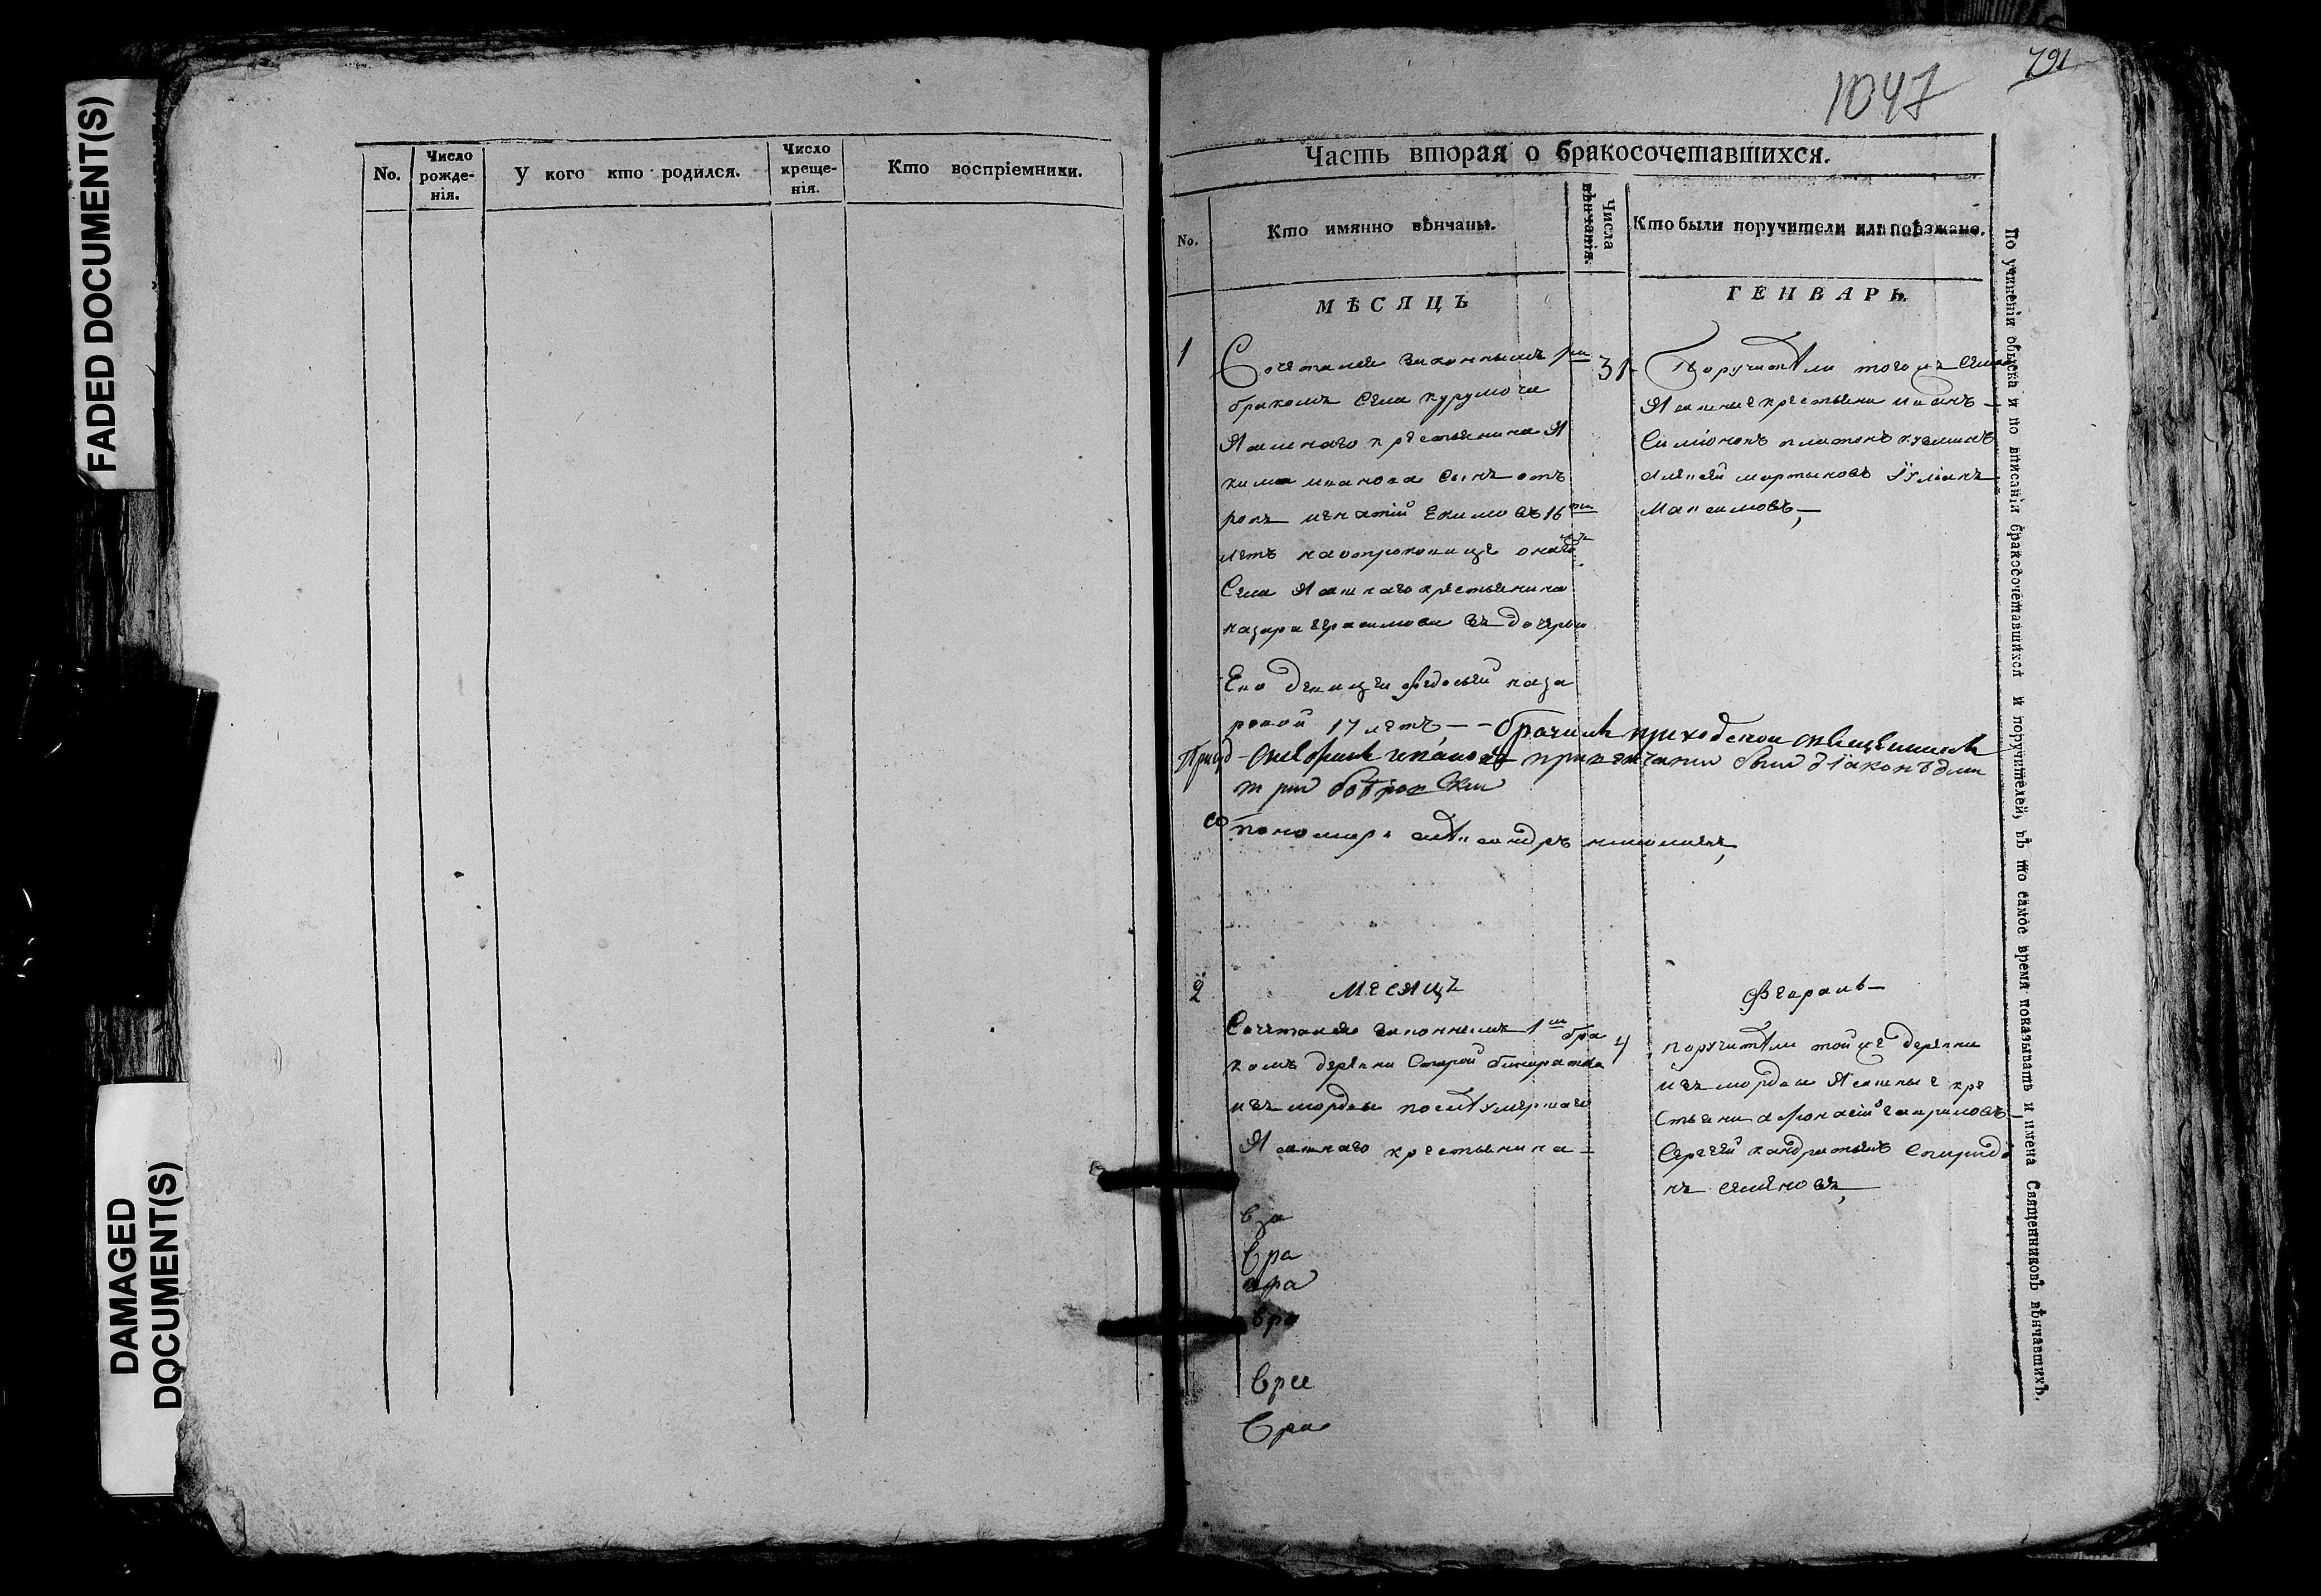 FADED DOCUMENT(S)
DAMAGED
DOCUMENT(S)
No.
Число
рожде-
нія.
У кого кто родился.
Число
креще-
нія.
Кто воспріемники.
791
1047
Часть вторая о бракосочетавшихся.
No.
Кто имянно вѣнчаны.
Числа
вѣнчанія.
Кто были поручители или поѣзжане.
МѢСЯЦЪ
ГЕНВАРЬ
1
Сочетался законнымъ 1м
бракомъ Села курумоча
Ясашнаго крестьянина Я
кима иванова Сынъ от
рокъ игнатій Екимовъ 16ти
летъ наотроковице онаго
Села Ясашнаго крестьянина
назара герасимова зъ дочерью
Его девицеи Федосьей наза
ровой 17 летъ,
31
Поручители того жъ Села
Ясашные крестьяни иванъ
Симіоновъ платонъ кузминъ
Алексей мартыновъ Іуліанъ
Максимовъ,
брачилъ приходской священникъ
при венчании был діаконъ дми
трий
пономарь александръ
2
Месяцъ
Февраль
Сочетался законнымъ 1м бра
комъ деревни Старой
изъ мордвы после умершаго
Ясашнаго крестьянина
4
поручители той же деревни
изъ мордвы Ясашные кре
стьяни афонасій гавриловъ
Сергей кандратьевъ Спиридо
нъ семеновъ,
вра
вра
вра
По учиненіи обыска и по вписаніи бракосочетавшихся и поручителей, въ то самое время показывать и имена Священниковъ вѣнчавшихъ.